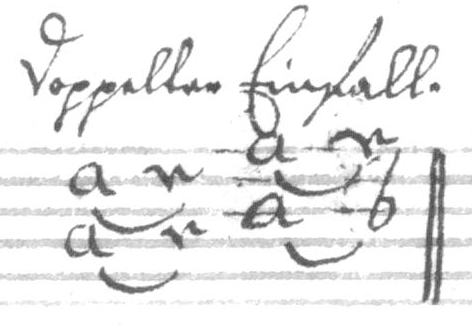 Doppelter Einfall.
a r
a r
a b
a r